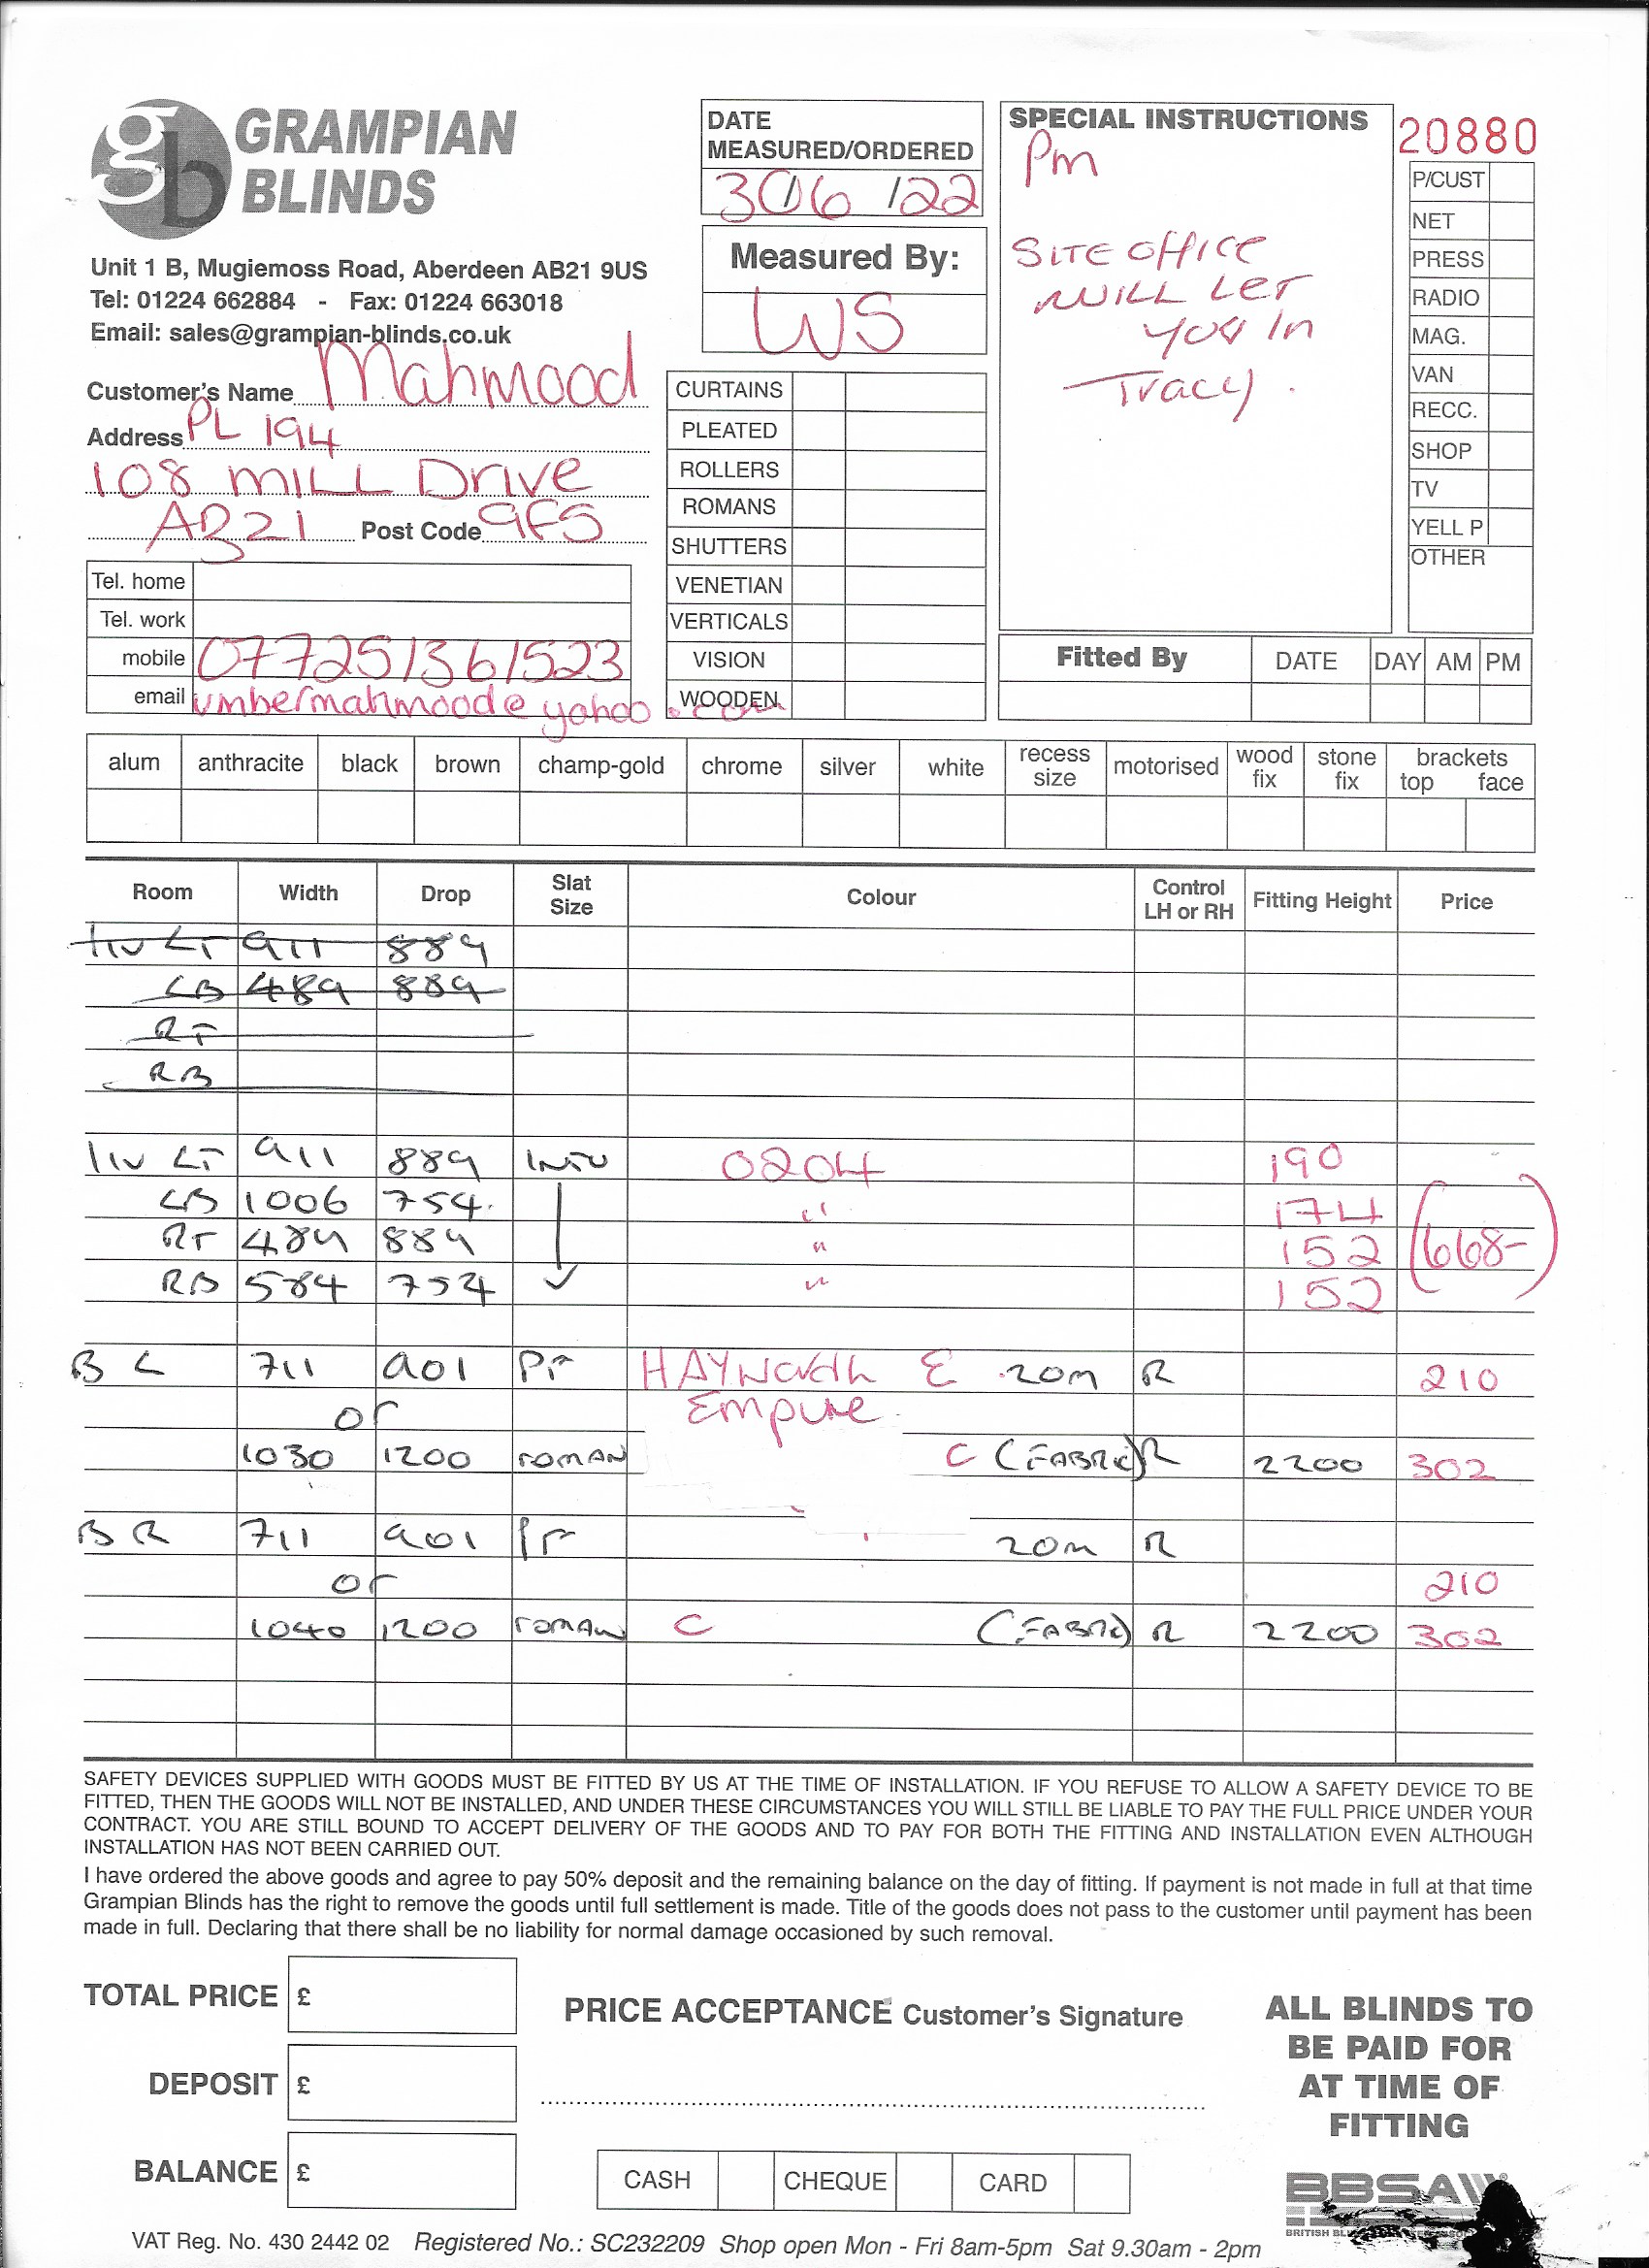 GRAMPIAN
BLINDS
Unit 1 B, Mugiemoss Road, Aberdeen AB21 9US
Tel: 01224 662884 - Fax: 01224 663018
Email: sales@grampian-blinds.co.uk
Customer's Name Mahmood
Address PL 194
108 MILL Drive
AB21 Post Code 9FS
Tel. home
Tel. work
mobile 077251361523
email umbermahmood@yahoo.com
DATE
MEASURED/ORDERED
30/6/22
Measured By:
WS
CURTAINS
PLEATED
ROLLERS
ROMANS
SHUTTERS
VENETIAN
VERTICALS
VISION
WOODEN
SPECIAL INSTRUCTIONS
Pm
SITE OFFICE
WILL LET
YOU In
Tracy.
20880
P/CUST
NET
PRESS
RADIO
MAG.
VAN
RECC.
SHOP
TV
YELL P
OTHER
Fitted By DATE DAY AM PM
alum anthracite black brown champ-gold chrome silver white recess size motorised wood fix stone fix brackets top face
Room Width Drop Slat Size Colour Control LH or RH Fitting Height Price
LIV LT 911 889
LB 489 889
RT
RB
LIV LT 911 889 INTU 0204 190
LB 1006 754 " 174
RT 489 889 " 152 (668-)
RB 584 754 " 152
B L 711 901 PF HAYWorth E 20m R 210
or Empure
1030 1200 ROMAN C (FABRIC) R 2200 302
B R 711 901 PF 20m R
or 210
1040 1200 ROMAN C (FABRIC) R 2200 302
SAFETY DEVICES SUPPLIED WITH GOODS MUST BE FITTED BY US AT THE TIME OF INSTALLATION. IF YOU REFUSE TO ALLOW A SAFETY DEVICE TO BE
FITTED, THEN THE GOODS WILL NOT BE INSTALLED, AND UNDER THESE CIRCUMSTANCES YOU WILL STILL BE LIABLE TO PAY THE FULL PRICE UNDER YOUR
CONTRACT. YOU ARE STILL BOUND TO ACCEPT DELIVERY OF THE GOODS AND TO PAY FOR BOTH THE FITTING AND INSTALLATION EVEN ALTHOUGH
INSTALLATION HAS NOT BEEN CARRIED OUT.
I have ordered the above goods and agree to pay 50% deposit and the remaining balance on the day of fitting. If payment is not made in full at that time
Grampian Blinds has the right to remove the goods until full settlement is made. Title of the goods does not pass to the customer until payment has been
made in full. Declaring that there shall be no liability for normal damage occasioned by such removal.
TOTAL PRICE £
DEPOSIT £
BALANCE £
PRICE ACCEPTANCE Customer's Signature
CASH CHEQUE CARD
ALL BLINDS TO
BE PAID FOR
AT TIME OF
FITTING
BBSA
BRITISH
VAT Reg. No. 430 2442 02 Registered No.: SC232209 Shop open Mon - Fri 8am-5pm Sat 9.30am - 2pm